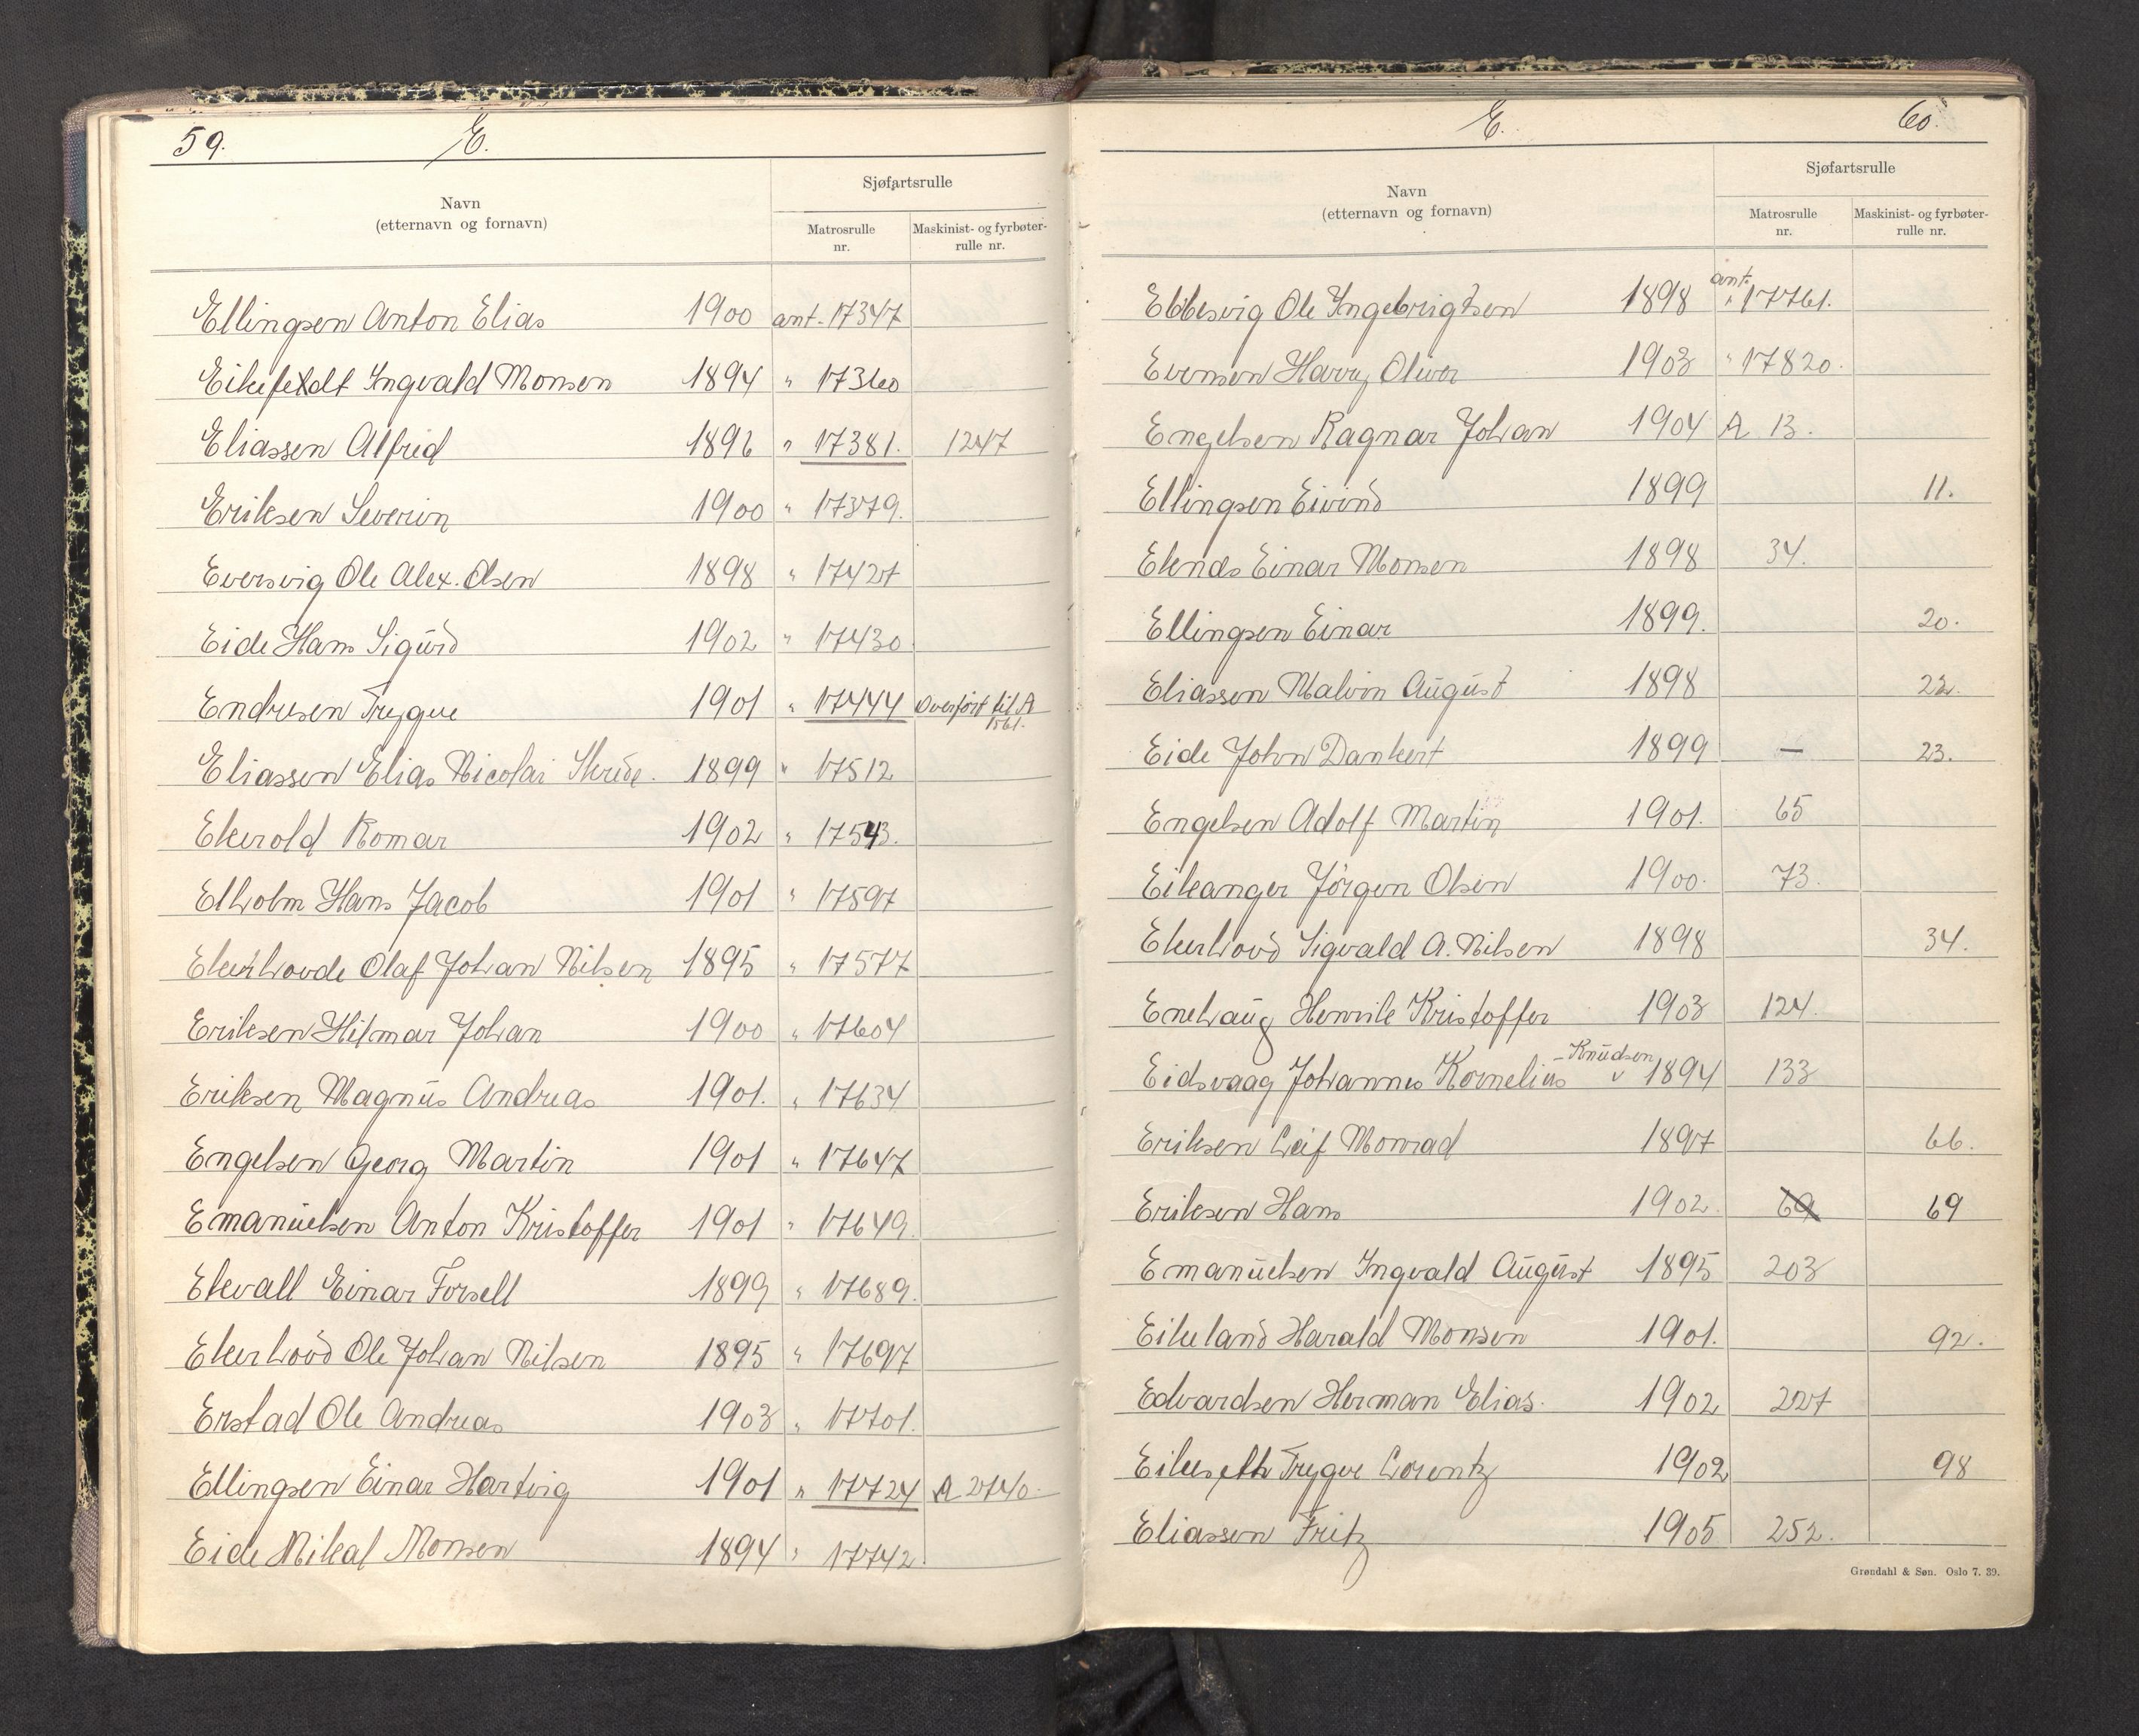 59. E.
Navn
(etternavn og fornavn)
Sjøfartsrulle
Matrosrulle
nr.
Maskinist- og fyrbøter-
rulle nr.
Ellingsen Anton Elias 1900 ant. 17347
Eikefeldt Ingvald Monsen 1894 " 17360
Eliassen Alfred 1896 " 17381. 1247
Eriksen Severin 1900 " 17379.
Eversvig Ole Alex. Olsen 1898 " 17427
Eide Hans Sigurd 1902 " 17430
Endresen Trygve 1901 " 17444 Overført til A
1561.
Eliassen Elias Nicolai Skrede. 1899 " 17512
Ekerold Romar 1902 " 17543.
Elholm Hans Jacob 1901 " 17597
Ekerhovde Olaf Johan Nilsen 1895 " 17577
Eriksen Hilmar Johan 1900 " 17604
Eriksen Magnus Andreas 1901. " 17634
Engelsen Georg Martin 1901 " 17647
Emanuelsen Anton Kristoffer 1901 " 17649.
Ekevall Einar Forsell 1899 " 17689.
Ekerhovd Ole Johan Nilsen 1895 " 17697
Erstad Ole Andreas 1903 " 17701.
Ellingsen Einar Hartvig 1901 " 17724 A 2740.
Eide Mikal Monsen 1894 " 17742.
E. 60.
Navn
(etternavn og fornavn)
Sjøfartsrulle
Matrosrulle
nr.
Maskinist- og fyrbøter-
rulle nr.
Ebbesvig Ole Ingebrigtsen 1898 ant. " 17761.
Evensen Harry Oliver 1903 " 17820.
Engelsen Ragnar Johan 1904 A 13.
Ellingsen Eivind 1899 11.
Ekends Einar Monsen 1898 34.
Ellingsen Einar 1899. 20.
Eliassen Malvin August 1898 22.
Eide John Dankert 1899 — 23.
Engelsen Adolf Martin 1901. 65
Eikanger Jörgen Olsen 1900. 73.
Ekerhovd Sigvald A. Nilsen 1898 34.
Enehaug Henrik Kristoffer 1903 124.
- Knudsen
Eidsvaag Johannes Kornelius v 1894 133
Eriksen Leif Monrad 1897 66.
Eriksen Hans 1902. 69 69
Emanuelsen Ingvald August 1895 203
Eikeland Harald Monsen 1901. 92.
Edvardsen Herman Elias. 1902 227
Eikeseth Trygve Lorentz 1902 98
Eliassen Fritz 1905 252.
Grøndahl & Søn. Oslo 7. 39.